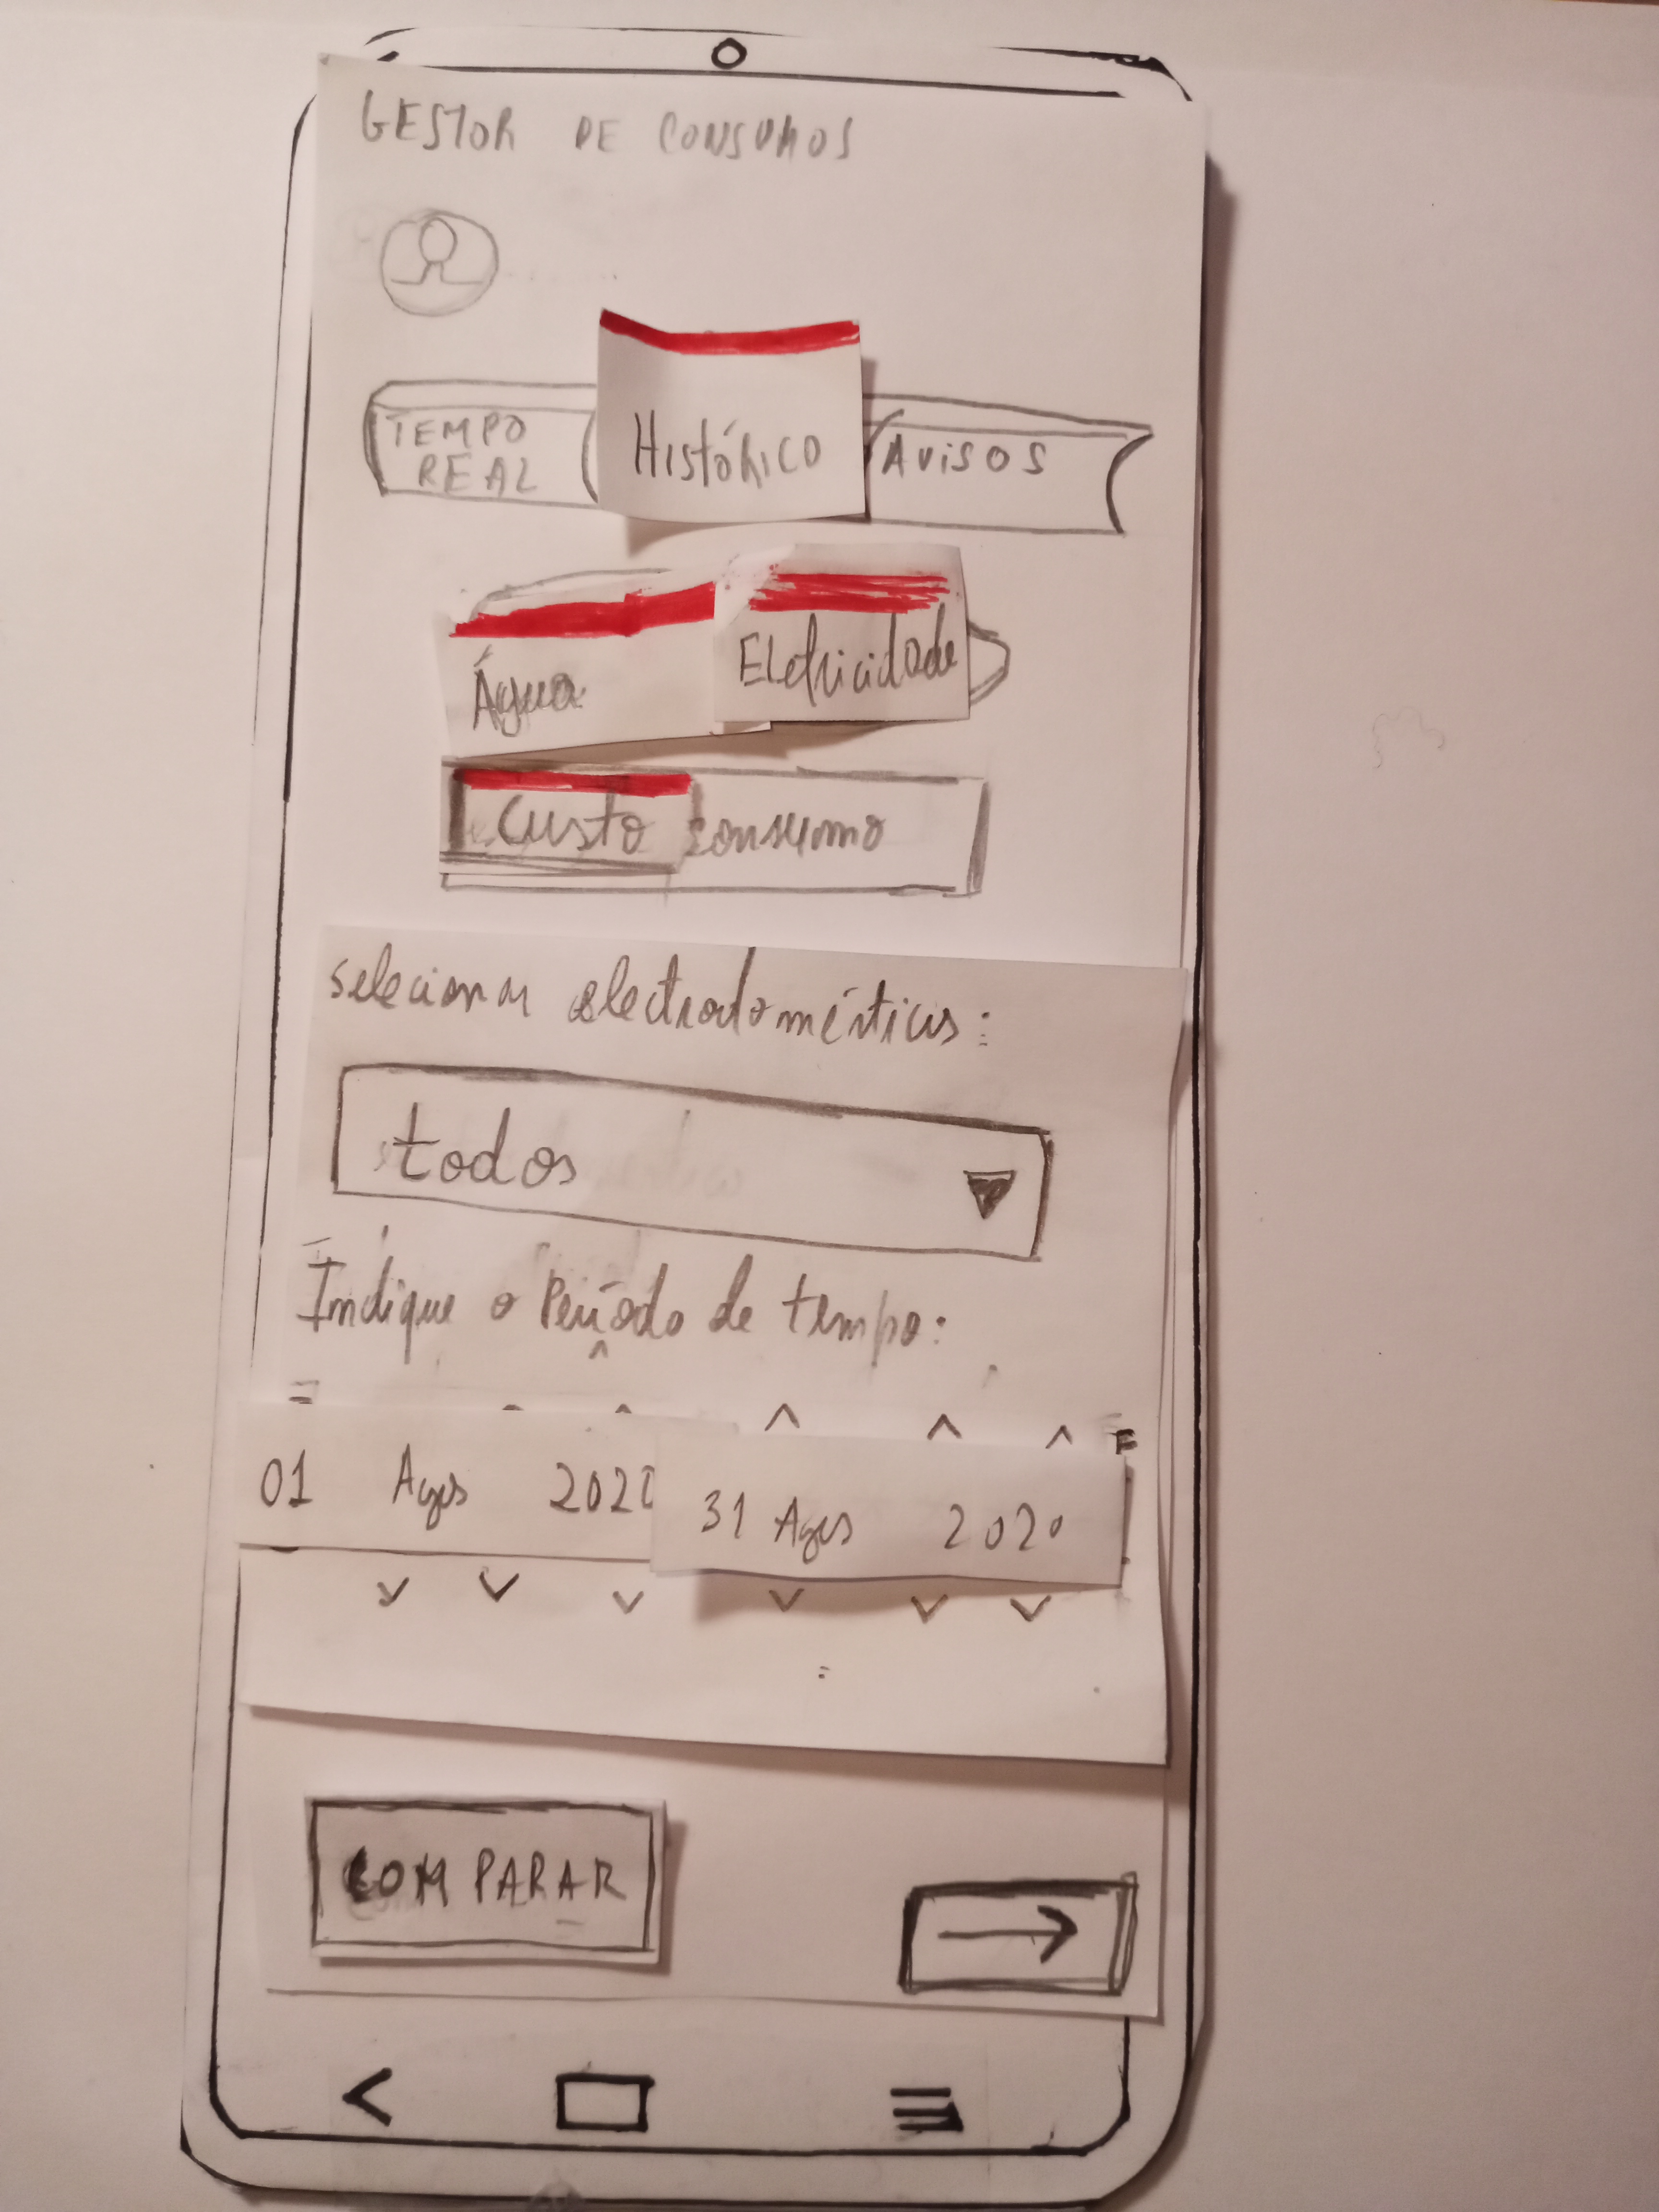 GESTOR DE CONSUMOS
TEMPO REAL
Histórico
Avisos
Água
Eletricidade
Custo
consumo
selecionar electrodomésticos:
todos
Indique o Período de tempo:
01 Agos 2020
31 Agos 2020
COMPARAR